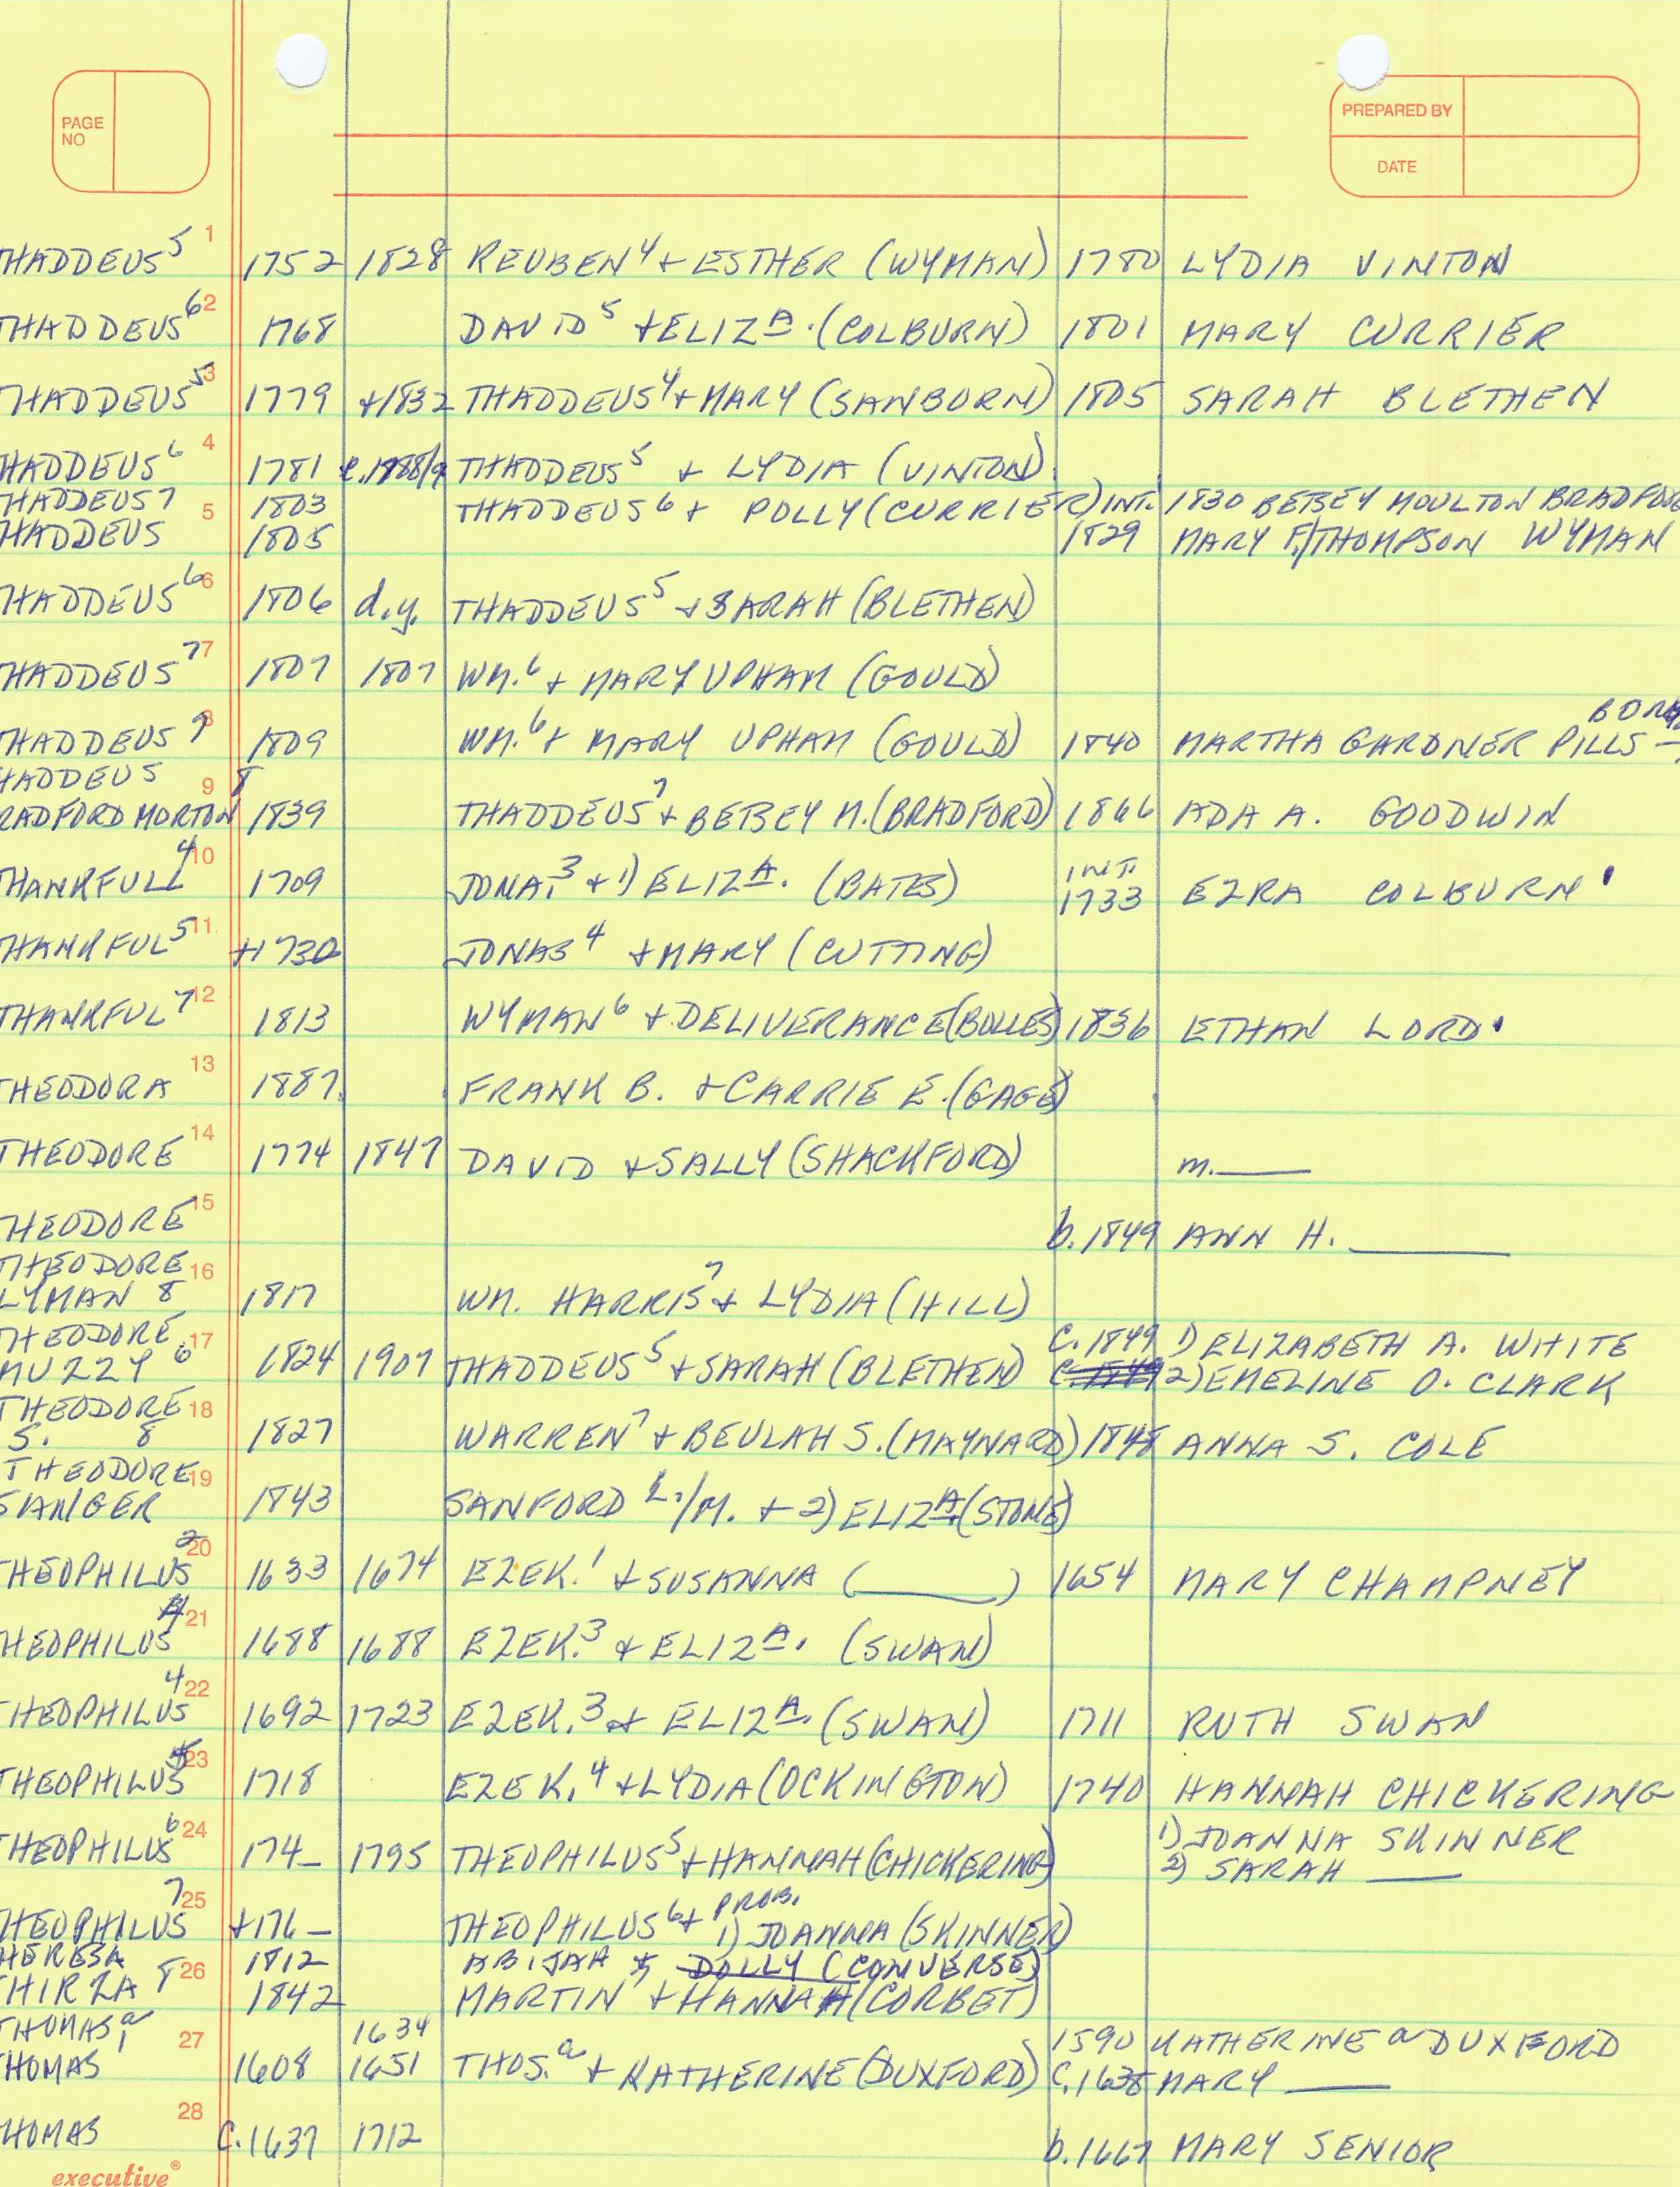 PAGE NO
PREPARED BY
DATE
1
HADDEUS⁵ 1752 1828 REUBEN⁴ + ESTHER (WYMAN) 1780 LYDIA VINTON
2
THADDEUS⁶ 1768 DAVID⁵ + ELIZA. (COLBURN) 1801 MARY CURRIER
3
THADDEUS⁵ 1779 +1832 THADDEUS⁴ + MARY (SANBORN) 1805 SARAH BLETHEN
4
HADDEUS⁶ 1781 THADDEUS⁵ + LYDIA (VINTON)
HADDEUS 7 1803 THADDEUS⁶ + POLLY (CURRIER) INT. 1830 BETSEY MOULTON BRADFORD
5
HADDEUS 1805 1829 MARY F./THOMPSON WYMAN
6
THADDEUS⁶ 1806 d.y. THADDEUS⁵ + SARAH (BLETHEN)
7
HADDEUS⁷ 1807 1807 WM.⁶ + MARY UPHAM (GOULD)
BORN
8
HADDEUS⁷ 1809 WM.⁶ + MARY UPHAM (GOULD) 1840 MARTHA GARDNER PILLS –
HADDEUS 8
9
RADFORD MORTON 1839 THADDEUS⁷ + BETSEY M. (BRADFORD) 1866 ADA A. GOODWIN
10
HANKFULL⁴ 1709 JONA.³ + 1) ELIZA. (BATES) INT. 1733 EZRA COLBURN
11
HANKFUL⁵ +1730 JONAS⁴ + MARY (CUTTING)
12
THANKFUL⁷ 1813 WYMAN⁶ + DELIVERANCE (BOLLES) 1836 ETHAN LORD
13
THEODORA 1887. FRANK B. + CARRIE E. (GAGE)
14
THEODORE 1774 1847 DAVID + SALLY (SHACKFORD) m. ____
15
HEODORE b. 1849 ANN H. ____
THEODORE
16
LYMAN 8 1817 WM. HARRIS⁷ + LYDIA (HILL)
THEODORE C. 1849 1) ELIZABETH A. WHITE
17
MUZZY 6 1824 1907 THADDEUS⁵ + SARAH (BLETHEN) 2) EMELINE O. CLARK
THEODORE
18
S. 8 1827 WARREN⁷ + BEULAH S. (MAYNARD) 1848 ANNA S. COLE
THEODORE
19
SANGER 1843 SANFORD L./M. + 2) ELIZA. (STONE)
20
THEOPHILUS² 1633 1674 EZEK.¹ + SUSANNA (____) 1654 MARY CHAMPNEY
21
HEOPHILUS⁴ 1688 1688 EZEK.³ + ELIZA. (SWAN)
22
THEOPHILUS⁴ 1692 1723 EZEK.³ + ELIZA. (SWAN) 1711 RUTH SWAN
23
THEOPHILUS⁵ 1718 EZEK.⁴ + LYDIA (OCKINGTON) 1740 HANNAH CHICKERING
24
THEOPHILUS⁶ 174_ 1795 THEOPHILUS⁵ + HANNAH (CHICKERING) 1) JOANNA SKINNER
2) SARAH ____
25
HEOPHILUS⁷ +176_ THEOPHILUS⁶ + PROB. 1) JOANNA (SKINNER)
HERESA 1812 ABIJAH & DOLLY (CONVERSE)
26
THIRZA 8 1842 MARTIN⁷ + HANNAH (CORBET)
THOMAS ᵃ 1634 1590 KATHERINE ᵃ DUXFORD
27
HOMAS¹ 1608 1651 THOS.ᵃ + KATHERINE (DUXFORD) C. 1638 MARY ____
28
HOMAS C. 1637 1712 b. 1667 MARY SENIOR
executive®